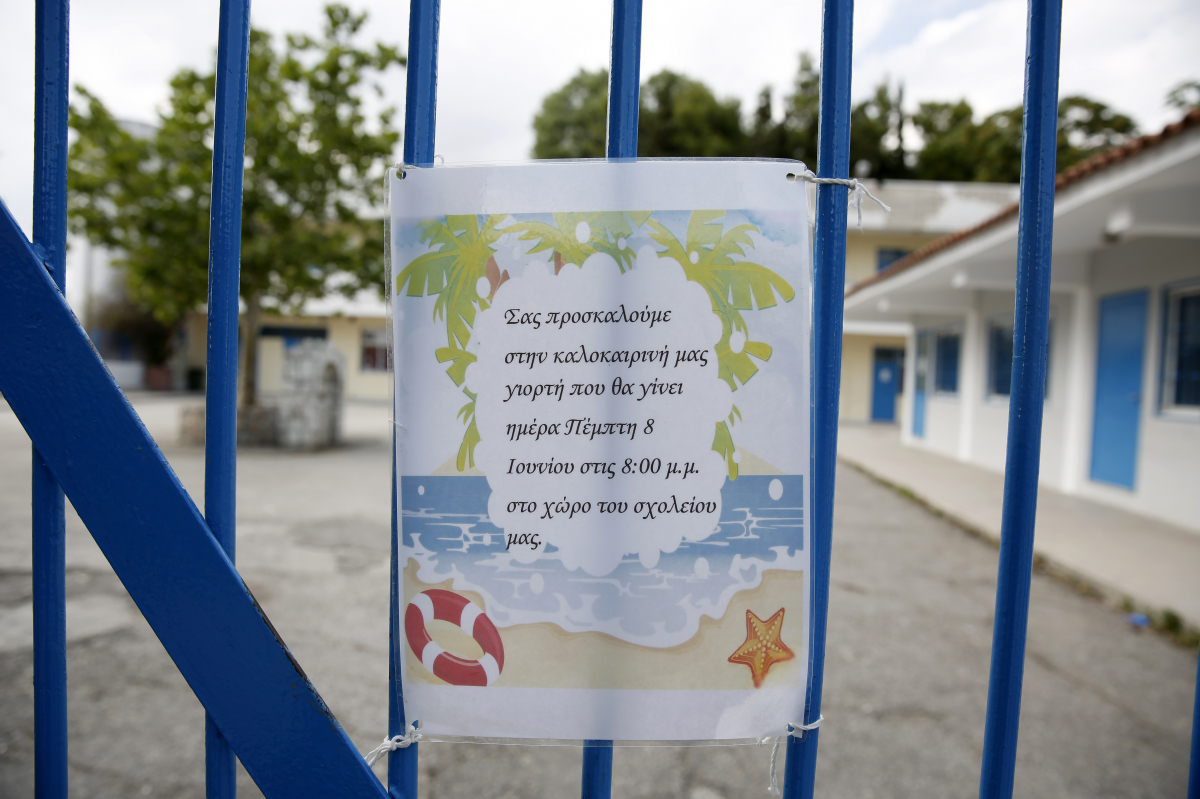 Σας προσκαλούμε
στην καλοκαιρινή μας
γιορτή που θα γίνει
ημέρα Πέμπτη 8
Ιουνίου στις 8:00 μ.μ.
στο χώρο του σχολείου
μας.